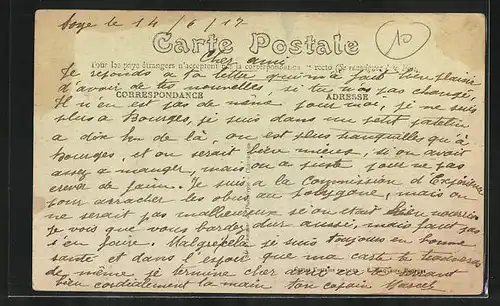 Soye le 14/6/17
Carte Postale
Cher ami
Tous les pays étrangers n'acceptent pas la correspondance au recto (Se renseigner à la Poste)
Je reponds a ta lettre qui m'a fait bien plaisir
d'avoir de tes nouvelles, si tu n'as pas changé,
CORRESPONDANCE ADRESSE
Il n'en est pas de même pour moi, je ne suis
plus a Bourges, je suis dans un petit patelin
a dix km de là, on est plus tranquilles qu'à
Bourges, et on serait bien mieux, si on avait
assez a manger, mais on a juste pour ne pas
crever de faim. Je suis a la Commission d'Expérience
pour arracher les obus au polygone, mais on
ne serait pas malheureux si on etait bien nourris
Je vois que vous bardez dur aussi, mais faut pas
s'en faire. Malgré cela je suis toujours en bonne
santé et dans l'espoir que ma carte te trouvera
de même, je termine cher ami en te serrant
bien cordialement la main ton copain